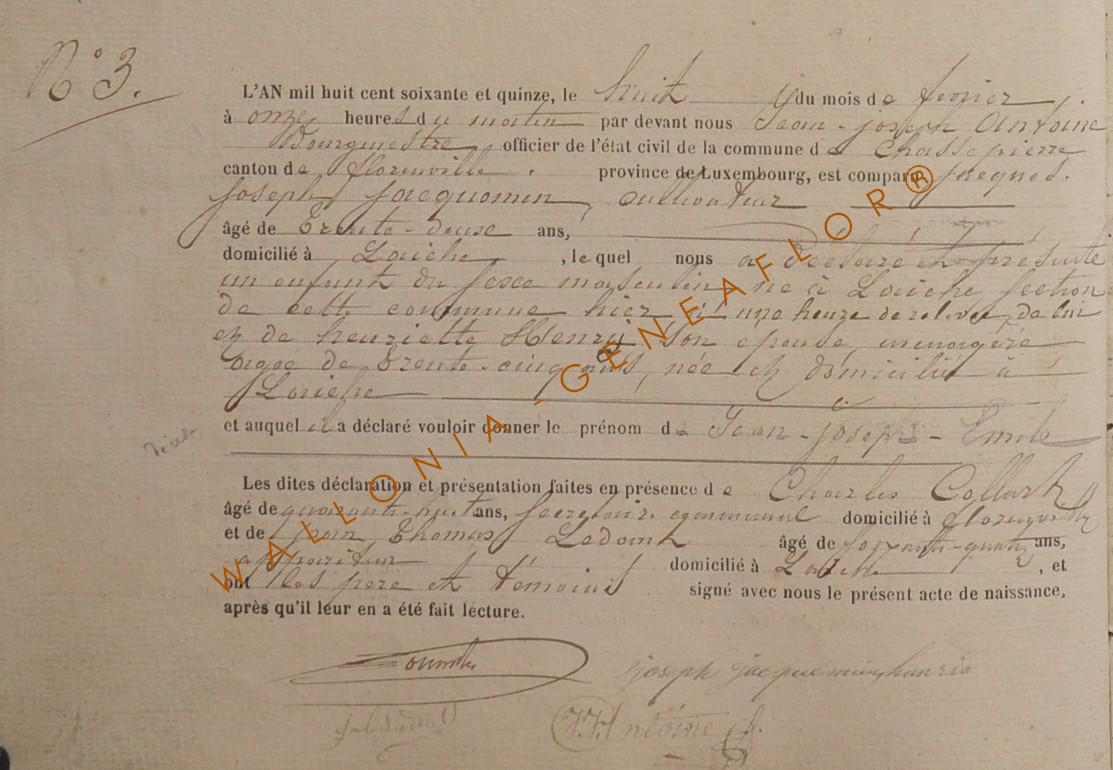 N° 3.
L'AN mil huit cent soixante et quinze, le huit du mois de fevrier
à onze heures du matin par devant nous Jean-joseph Antoine
Bourgmestre officier de l'état civil de la commune de Chassepierre
canton de florenville. province de Luxembourg, est comparu jacques.
joseph jacquemin, cultivateur
âgé de Trente-deux ans,
domicilié à Laiche, le quel nous a déclaré et présenté
un enfant du sexe masculin né à Laiche section
de cette commune hier à une heure de relevée, de lui
et de henriette Henry son épouse, menagère
agée de trente-cinq ans, née et domiciliée à
Laiche
et auquel il a déclaré vouloir donner le prénom de Jean-joseph-Emile
Les dites déclaration et présentation faites en présence de Charles Collart
âgé de quarante-huit ans, secretaire communal domicilié à florenville
et de jean Thomas Ledant âgé de soixante-quatre ans,
appariteur domicilié à Laiche, et
ont les père et témoins signé avec nous le présent acte de naissance,
après qu'il leur en a été fait lecture.
joseph jacquemin henri
J.J. Antoine
WALLONIA-GENEAFLOR®